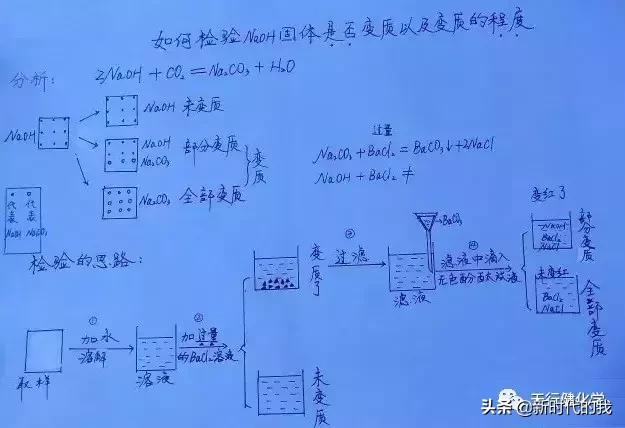 如何检验NaOH固体是否变质以及变质的程度
分析：
2NaOH + CO₂ = Na₂CO₃ + H₂O
NaOH
NaOH 未变质
NaOH
Na₂CO₃
部分变质
变质
Na₂CO₃ 全部变质
代表 NaOH
代表 Na₂CO₃
过量
Na₂CO₃ + BaCl₂ = BaCO₃↓ + 2NaCl
NaOH + BaCl₂ ≠
检验的思路：
取样
①
加水
溶解
溶液
②
加过量
的BaCl₂溶液
变质了
未变质
③
过滤
BaCO₃
滤液
④
滤液中滴入
无色酚酞试液
变红了
NaOH
BaCl₂
NaCl
部分变质
未变红
BaCl₂
NaCl
全部变质
天行健化学
头条 @新时代的我